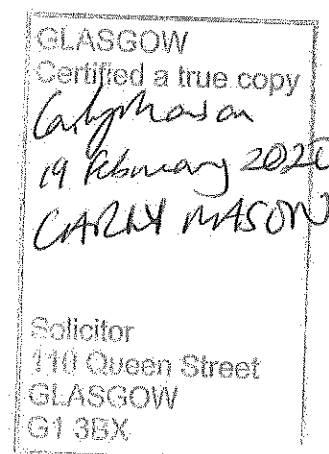 GLASGOW
Certified a true copy
Carly Mason
19 February 202
CARLY MASON
Solicitor
110 Queen Street
GLASGOW
G1 3BX